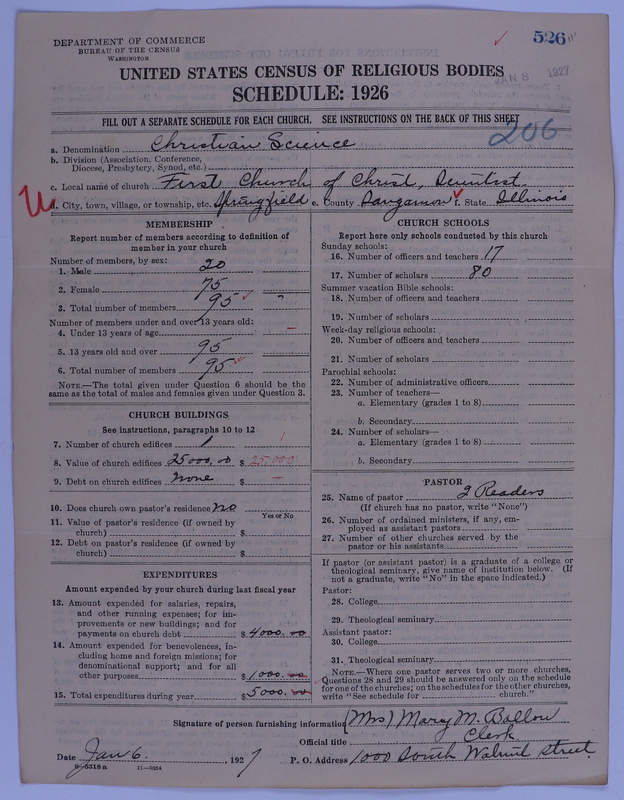 DEPARTMENT OF COMMERCE
BUREAU OF THE CENSUS
WASHINGTON
526
JAN 8 1927
UNITED STATES CENSUS OF RELIGIOUS BODIES
SCHEDULE: 1926
FILL OUT A SEPARATE SCHEDULE FOR EACH CHURCH. SEE INSTRUCTIONS ON THE BACK OF THIS SHEET
206
a. Denomination Christian Science
b. Division (Association, Conference,
Diocese, Presbytery, Synod, etc.)
c. Local name of church First Church of Christ, Scientist
d. City, town, village, or township, etc. Springfield e. County Sangamon f. State Illinois
U
MEMBERSHIP
Report number of members according to definition of
member in your church
Number of members, by sex:
1. Male 20
2. Female 75
3. Total number of members 95
Number of members under and over 13 years old:
4. Under 13 years of age —
5. 13 years old and over 95
6. Total number of members 95
NOTE.—The total given under Question 6 should be the
same as the total of males and females given under Question 3.
CHURCH BUILDINGS
See instructions, paragraphs 10 to 12
7. Number of church edifices 1 1
8. Value of church edifices 25000.00 $ 25,000
9. Debt on church edifices None $ —
10. Does church own pastor's residence No
Yes or No
11. Value of pastor's residence (if owned by
church) $
12. Debt on pastor's residence (if owned by
church) $
EXPENDITURES
Amount expended by your church during last fiscal year
13. Amount expended for salaries, repairs,
and other running expenses; for im-
provements or new buildings; and for
payments on church debt $ 4000.00
14. Amount expended for benevolences, in-
cluding home and foreign missions; for
denominational support; and for all
other purposes $ 1000.00
15. Total expenditures during year $ 5000.00
CHURCH SCHOOLS
Report here only schools conducted by this church
Sunday schools:
16. Number of officers and teachers 17
17. Number of scholars 80
Summer vacation Bible schools:
18. Number of officers and teachers
19. Number of scholars
Week-day religious schools:
20. Number of officers and teachers
21. Number of scholars
Parochial schools:
22. Number of administrative officers
23. Number of teachers—
a. Elementary (grades 1 to 8)
b. Secondary
24. Number of scholars—
a. Elementary (grades 1 to 8)
b. Secondary
PASTOR
25. Name of pastor 2 Readers
(If church has no pastor, write "None")
26. Number of ordained ministers, if any, em-
ployed as assistant pastors
27. Number of other churches served by the
pastor or his assistants
If pastor (or assistant pastor) is a graduate of a college or
theological seminary, give name of institution below. (If
not a graduate, write "No" in the space indicated.)
Pastor:
28. College
29. Theological seminary
Assistant pastor:
30. College
31. Theological seminary
NOTE.—Where one pastor serves two or more churches,
Questions 28 and 29 should be answered only on the schedule
for one of the churches; on the schedules for the other churches,
write "See schedule for church."
Signature of person furnishing information (Mrs) Mary M. Ballou
Official title Clerk
Date Jan 6, 1927 P. O. Address 1000 South Walnut Street
8-5318a 11-9354